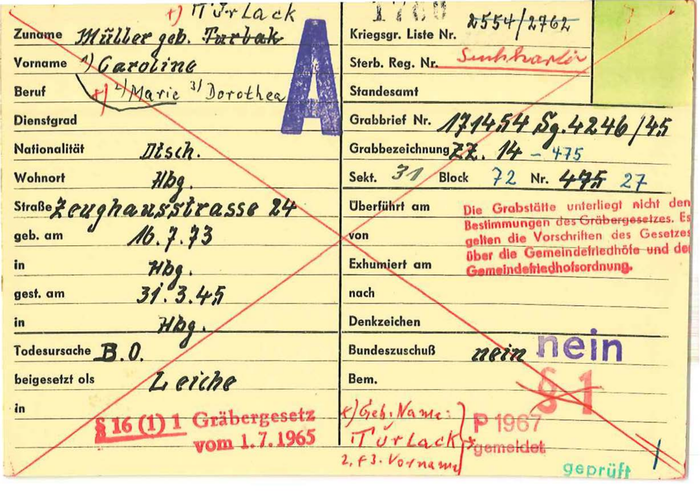 x) Türlack
Zuname Müller geb. Turbak
Vorname 1) Caroline
Beruf x) 2) Marie 3) Dorothea
Dienstgrad
Nationalität Dtsch.
Wohnort Hbg.
Straße Zeughausstrasse 24
geb. am 16.7.73
in Hbg.
gest. am 31.3.45
in Hbg.
Todesursache B.O.
beigesetzt als Leiche
in
§ 16 (1) 1 Gräbergesetz
vom 1.7.1965
A
1760
Kriegsgr. Liste Nr. 2554/2762
Sterb. Reg. Nr.
Standesamt
Grabbrief Nr. 171454 Sg. 4246/45
Grabbezeichnung ZZ. 14 - 475
Sekt. 31 Block 72 Nr. 475 27
Überführt am
von
Exhumiert am
nach
Denkzeichen
Die Grabstätte unterliegt nicht den
Bestimmungen des Gräbergesetzes. Es
gelten die Vorschriften des Gesetzes
über die Gemeindefriedhöfe und der
Gemeindefriedhofsordnung.
Bundeszuschuß nein nein
Bem. § 1
x) Geb. Name:
Türlack
2. + 3. Vorname
P 1967
gemeldet
geprüft